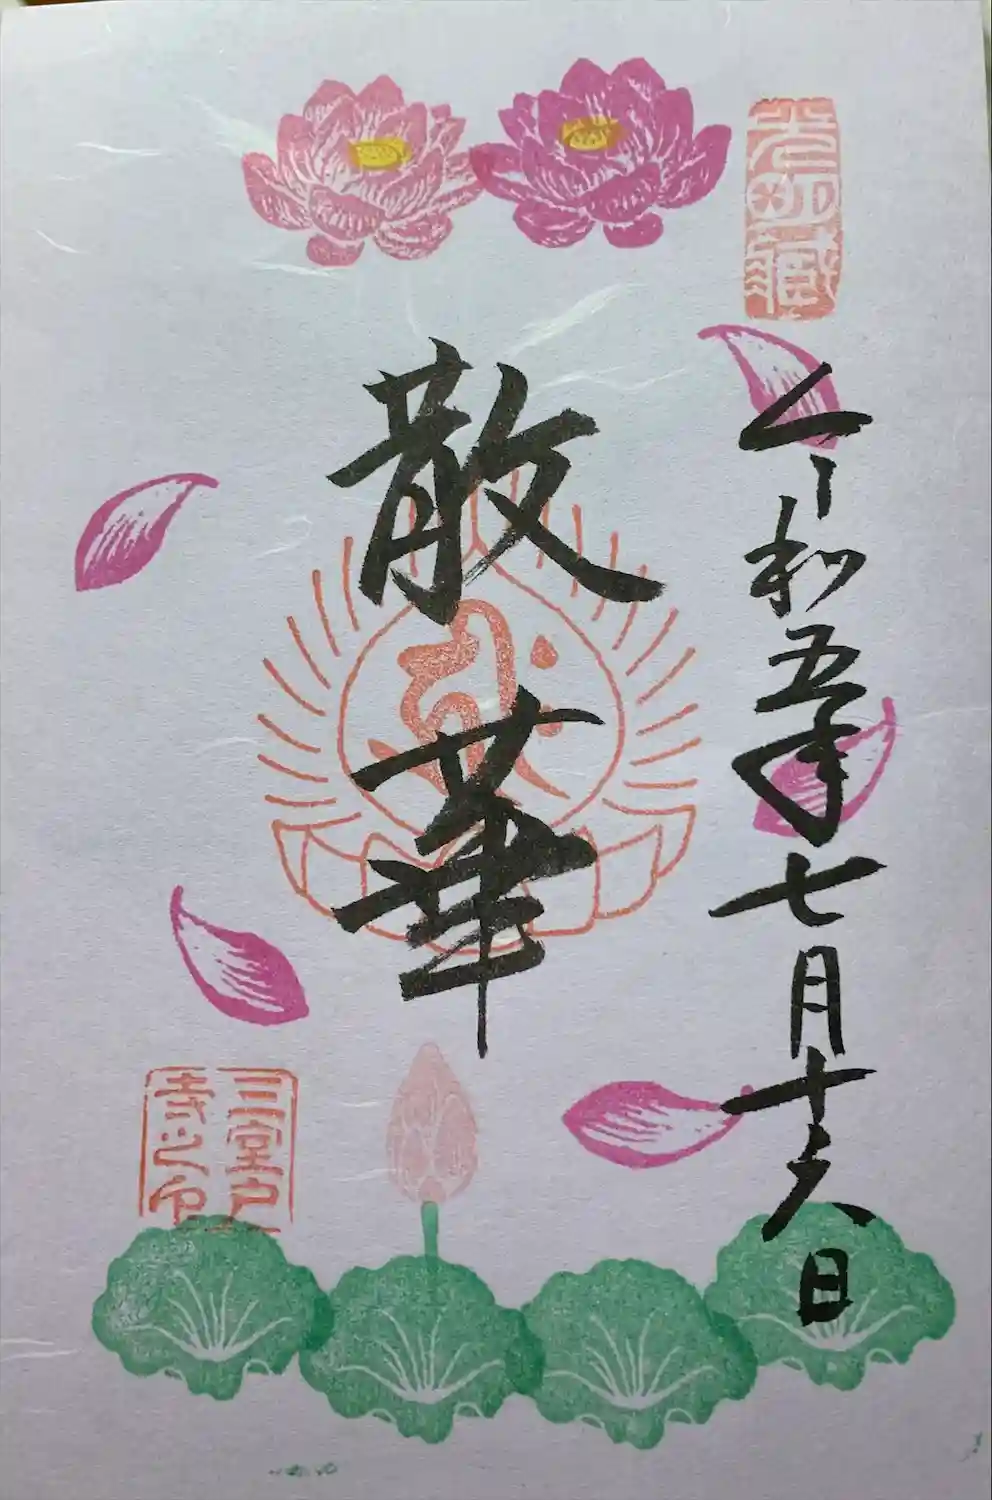 光明蔵
令和五年七月十六日
散華
三室戸
寺之印